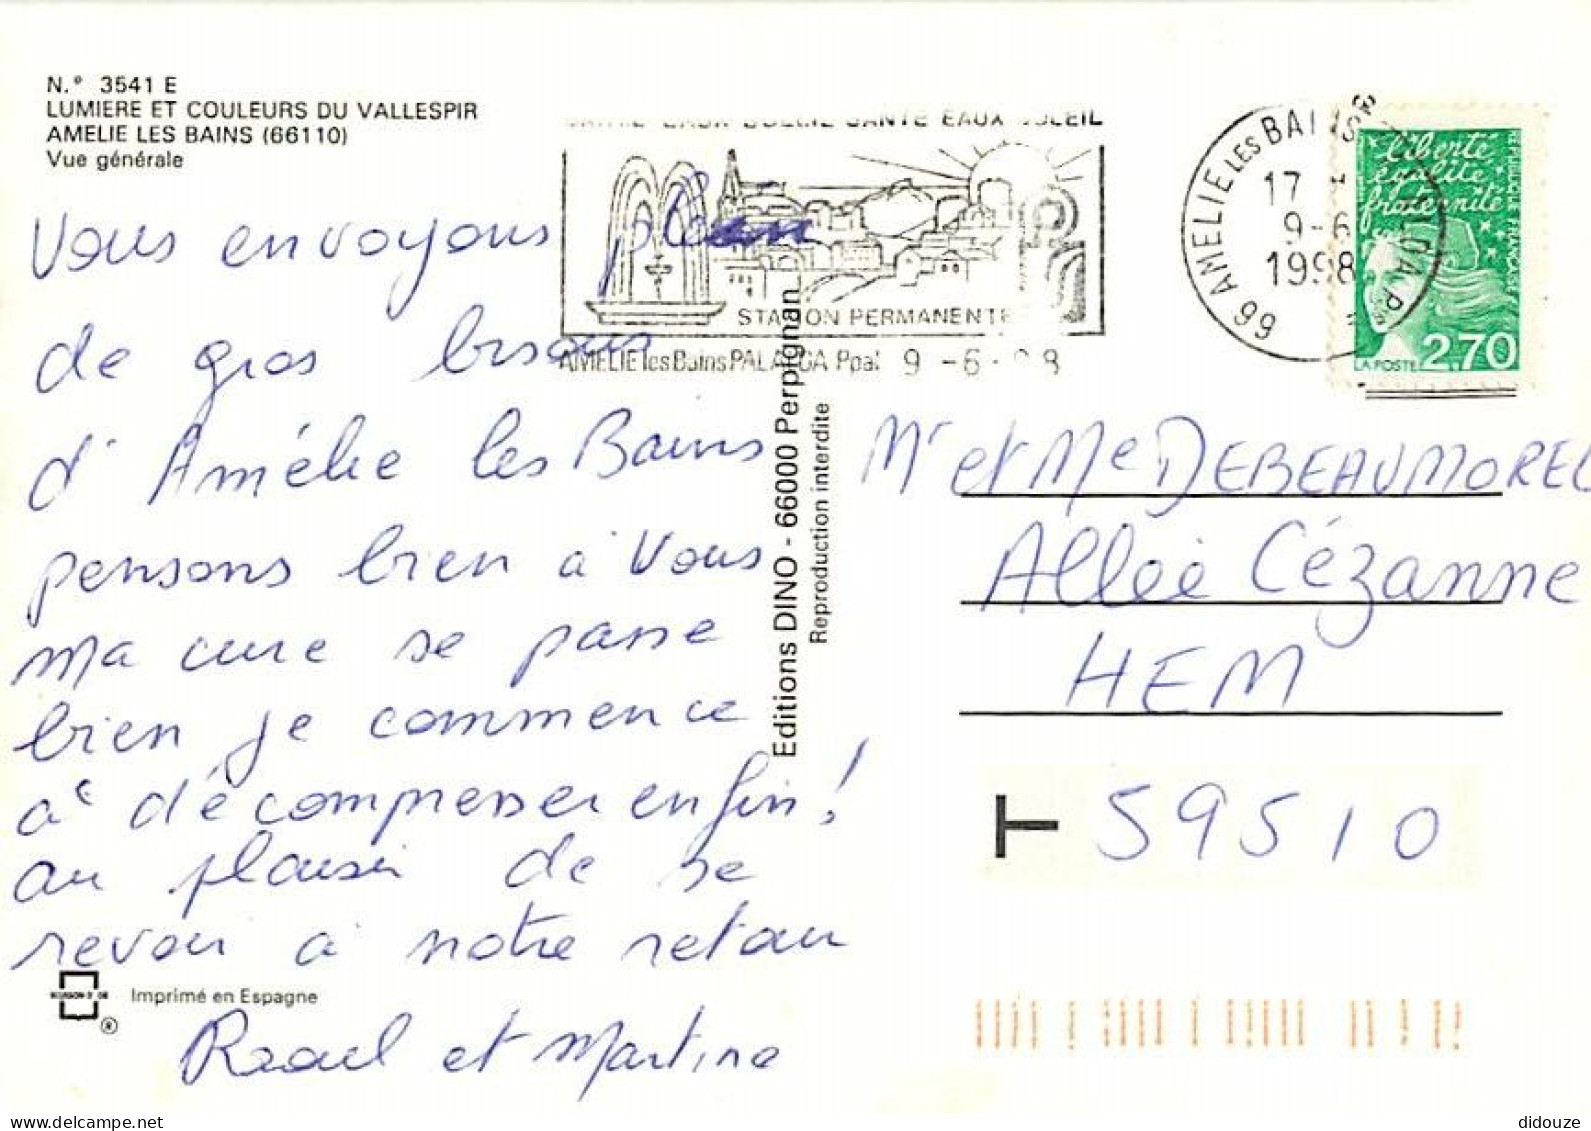 N.° 3541 E
LUMIERE ET COULEURS DU VALLESPIR
AMELIE LES BAINS (66110)
Vue générale
SANTE EAUX SOLEIL
STATION PERMANENTE
AMELIE les Bains PALALDA Ppal 9 - 6 - 98
66 AMELIE LES BAINS PALALDA P.O.
17 H
9-6
1998
liberté
égalité
fraternité
REPUBLIQUE FRANÇAISE
LA POSTE 2,70
Vous envoyons plein
de gros bisous
d'Amélie les Bains
pensons bien à Vous
ma cure se passe
bien je commence
à décompresser enfin!
au plaisir de se
revoir à notre retour
Raoul et Martine
Editions DINO - 66000 Perpignan
Reproduction interdite
Mr et Me DEBEAUMOREL
Allée Cézanne
HEM
T 59510
Imprimé en Espagne
®
delcampe.net
didouze